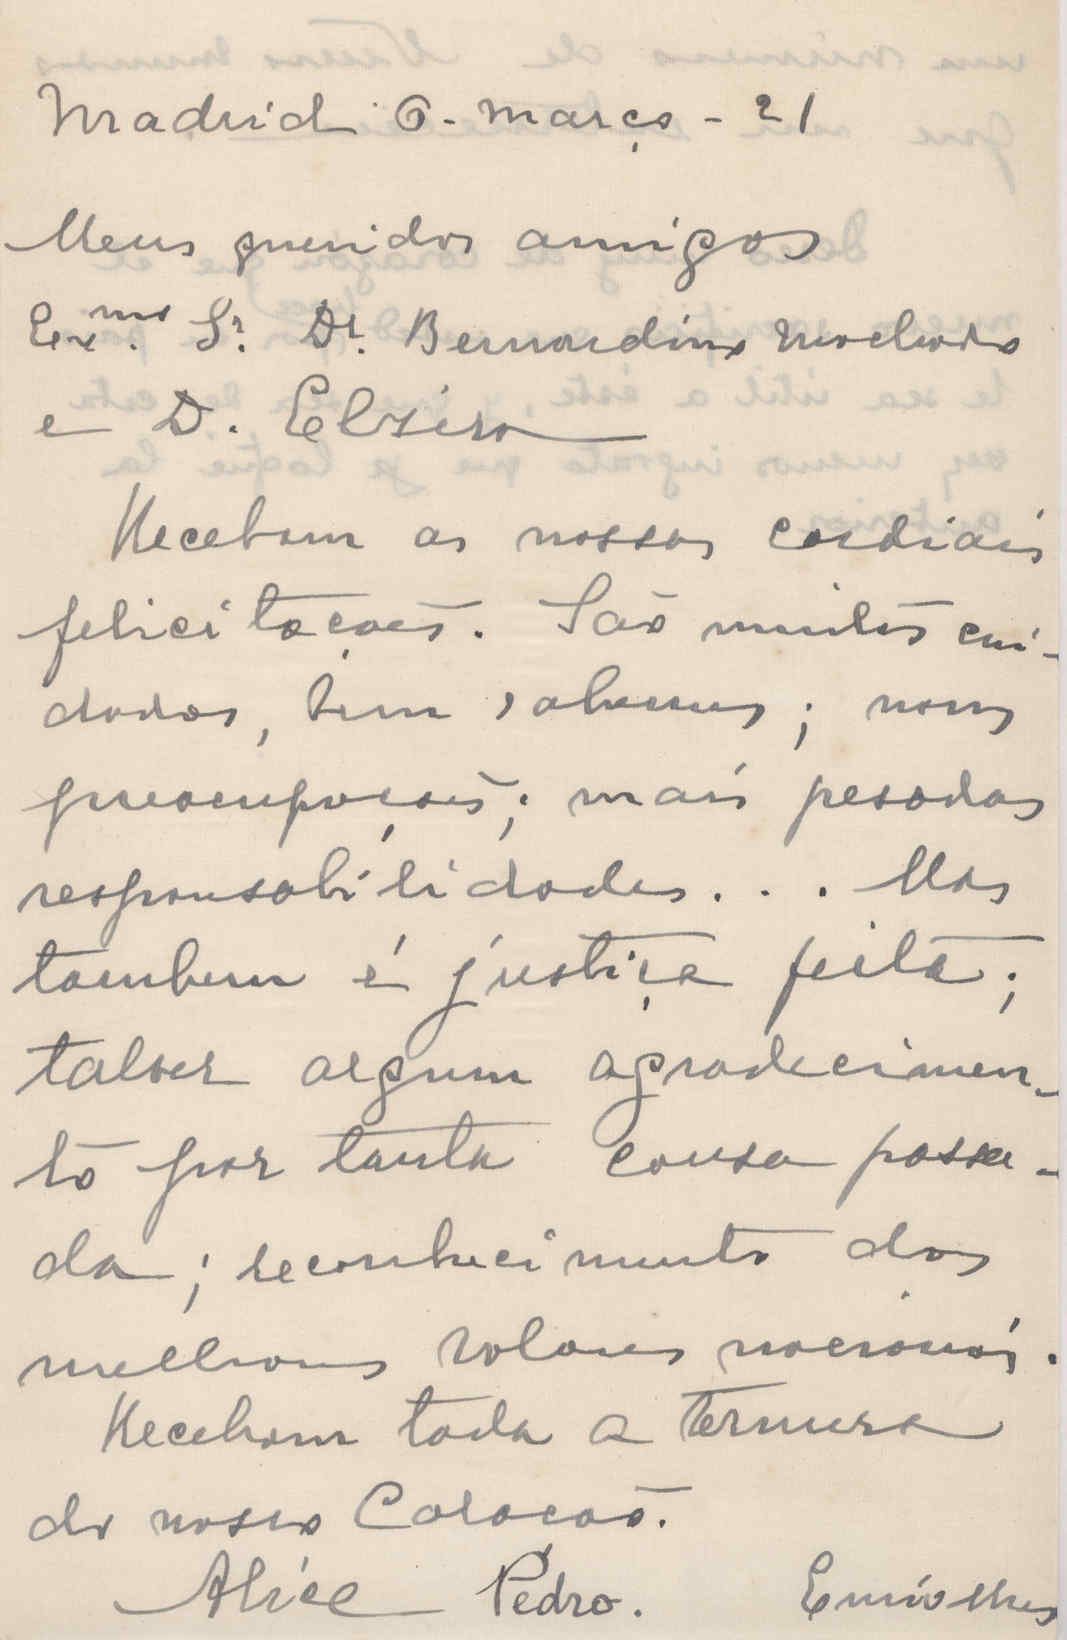 Madrid 6. março - 21
Meus queridos amigos
Exmo. Sr. Dr. Bernardino Machado
e D. Elzira
Recebam as nossas cordiais
felicitações. São muitos cui-
dados, bem sabemos; novas
preocupações; mais pesadas
responsabilidades... Mas
tambem é justiça feita;
talvez algum agradecimen-
to por tanta cousa passa-
da; reconhecimento dos
melhores valores nacionais.
Recebam toda a ternura
do nosso Coração.
Alice Pedro.